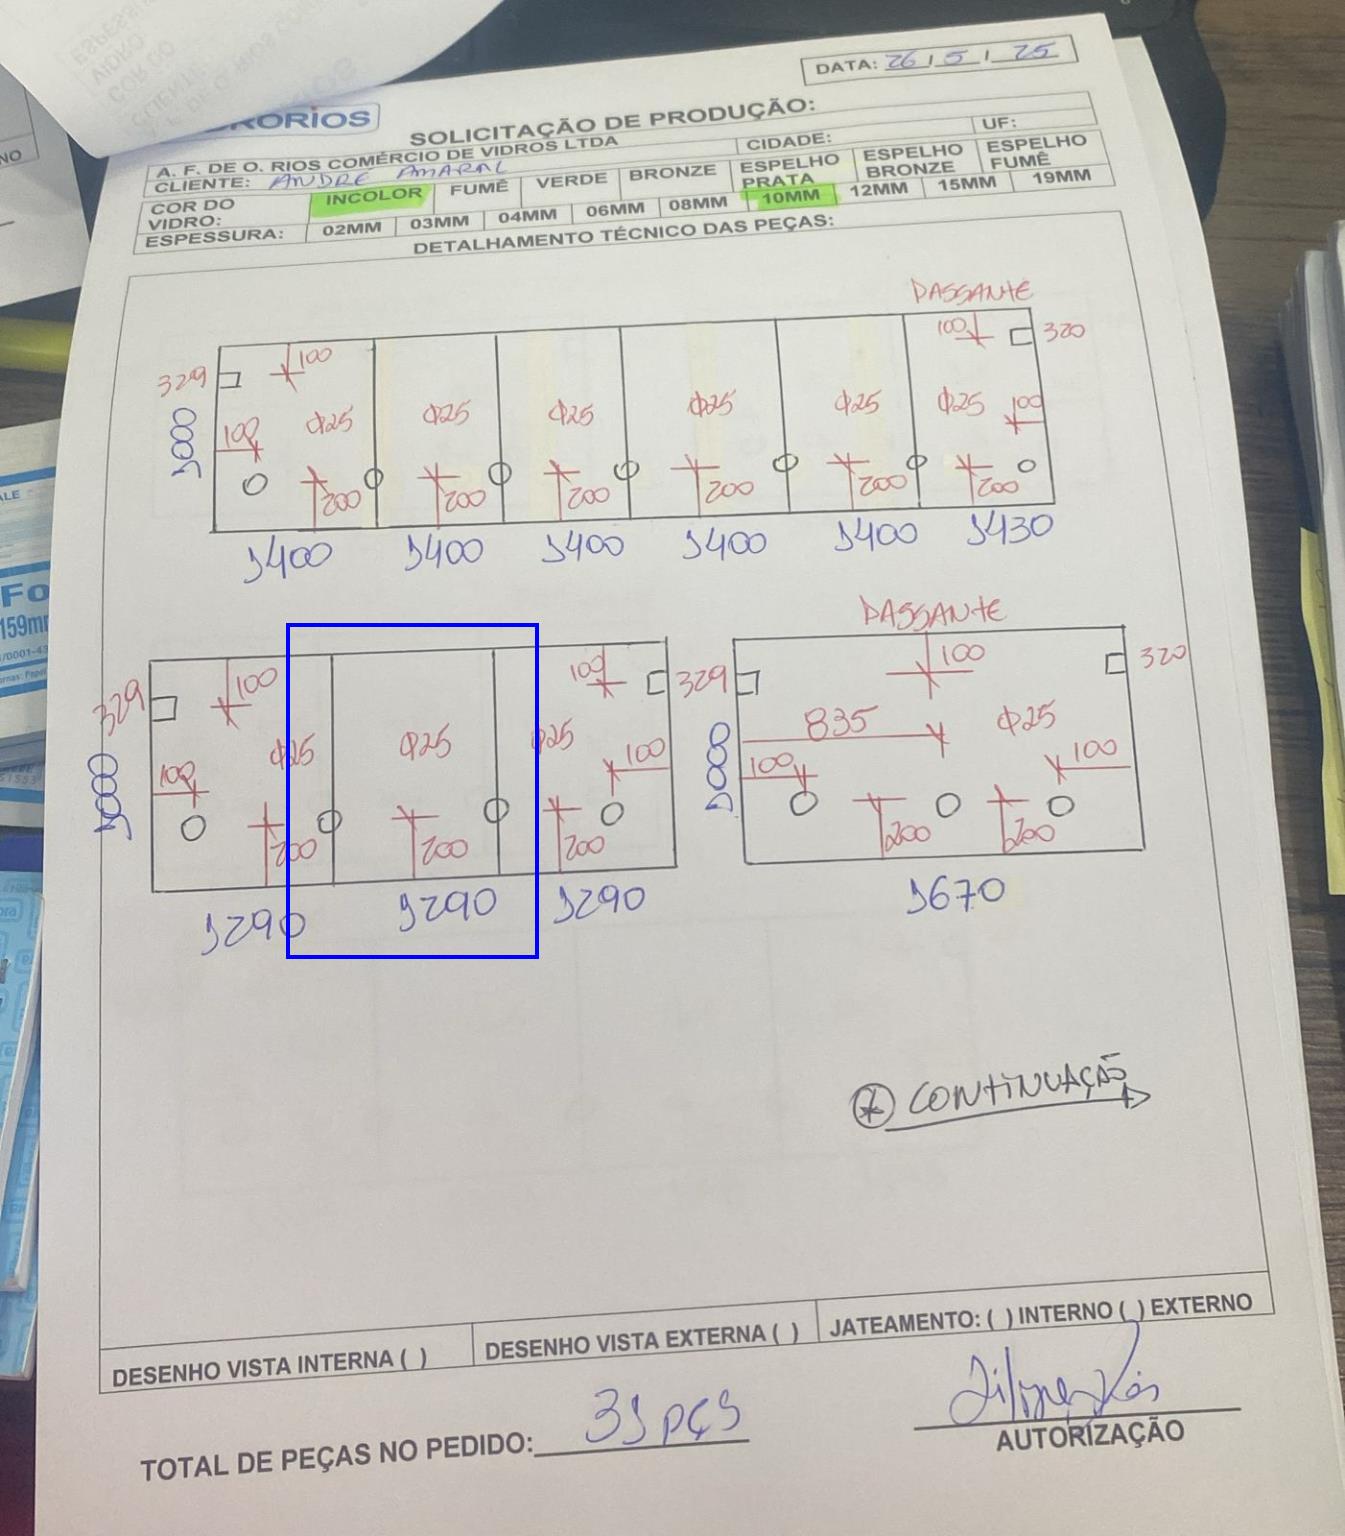 DATA: 26 / 5 / 25
RORIOS
SOLICITAÇÃO DE PRODUÇÃO:
A. F. DE O. RIOS COMÉRCIO DE VIDROS LTDA
CIDADE:
UF:
CLIENTE: ANDRE AMARAL
COR DO VIDRO:
INCOLOR
FUMÊ
VERDE
BRONZE
ESPELHO PRATA
ESPELHO BRONZE
ESPELHO FUMÊ
ESPESSURA:
02MM
03MM
04MM
06MM
08MM
10MM
12MM
15MM
19MM
DETALHAMENTO TÉCNICO DAS PEÇAS:
PASSANTE
329
100
100
320
1000
100
Φ25
Φ25
Φ25
Φ25
Φ25
Φ25
100
200
200
200
200
200
200
1400
1400
1400
1400
1400
1430
329
100
100
1000
100
Φ25
Φ25
Φ25
100
200
200
200
1290
1290
1290
PASSANTE
329
100
320
1000
835
Φ25
100
100
200
200
1670
CONTINUAÇÃO
DESENHO VISTA INTERNA ( )
DESENHO VISTA EXTERNA ( )
JATEAMENTO: ( ) INTERNO ( ) EXTERNO
TOTAL DE PEÇAS NO PEDIDO: 31 PÇS
AUTORIZAÇÃO
Fo
159mm
/0001-43